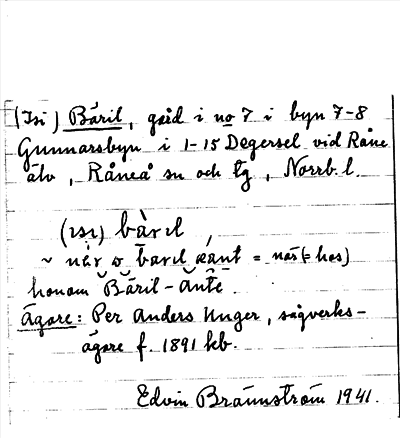 (Isi) Båril, gård i no 7 i byn 7-8
Gunnarsbyn i 1-15 Degersel vid Råne
älv, Råneå sn och tg, Norrb. l.
(ısı) bàrıl,
~ när o barıl änt = när (= hos)
honom Båril-Ante.
Ägare: Per Anders Unger, sågverks-
ägare f. 1891 kb.
Edvin Brännström 1941.